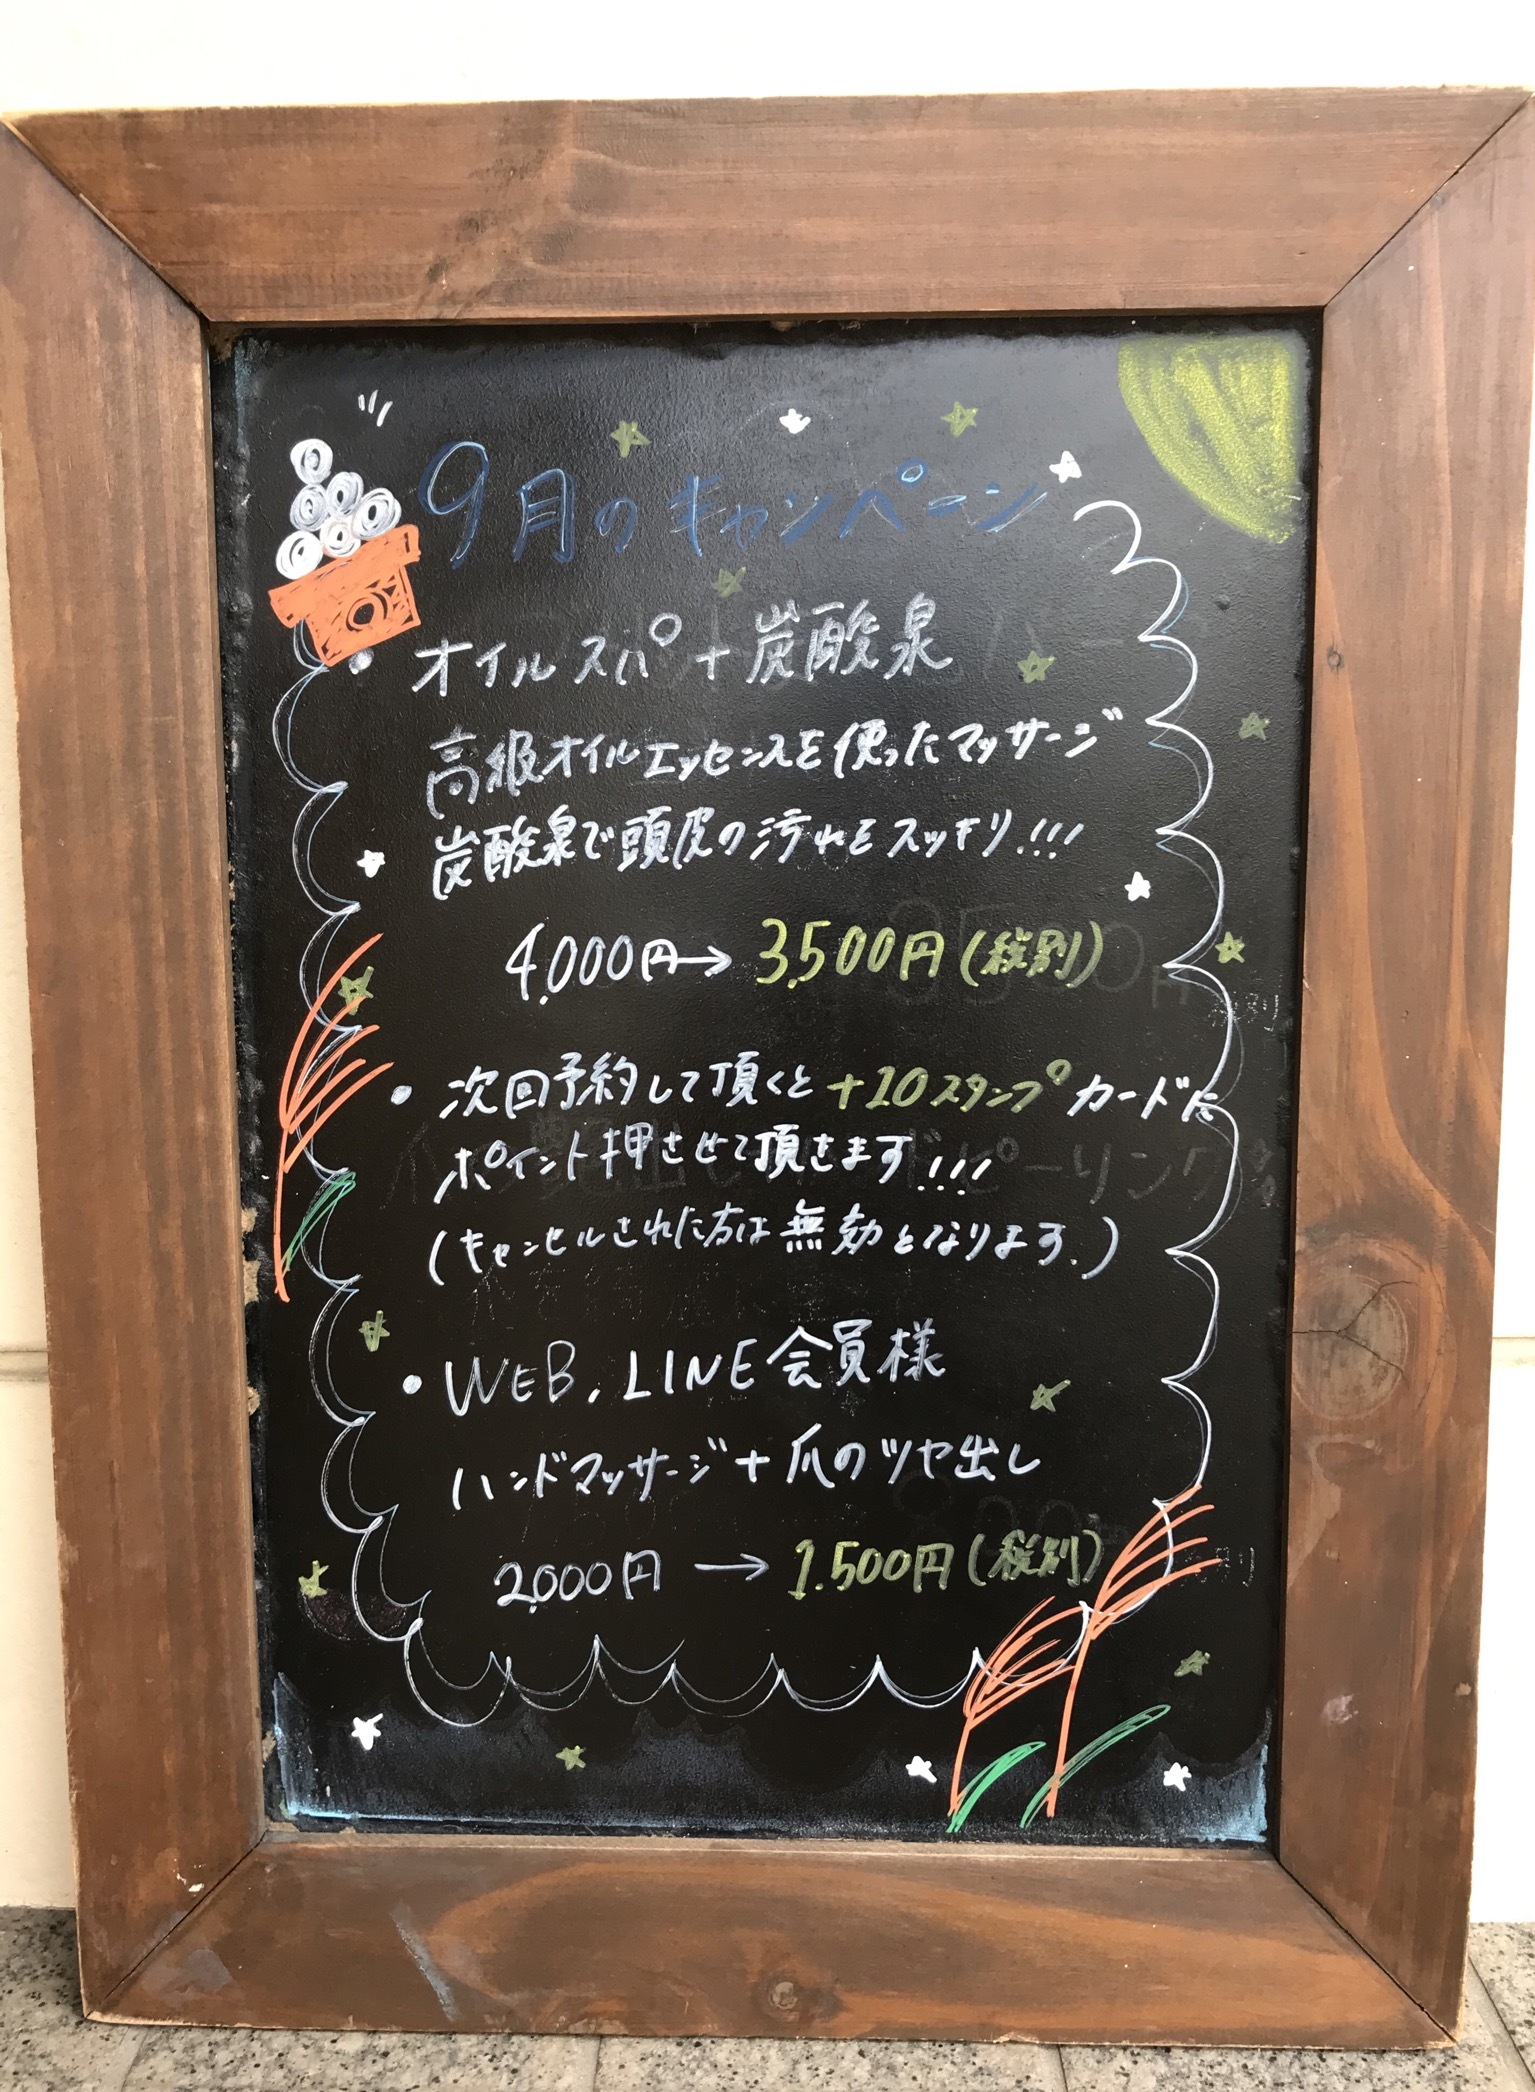 9月のキャンペーン
・オイルスパ+炭酸泉
高級オイルエッセンスを使ったマッサージ
炭酸泉で頭皮の汚れをスッキリ!!!
4,000円→3,500円(税別)
・次回予約して頂くと+10スタンプカードに
ポイント押させて頂きます!!!
(キャンセルされた方は無効となります.)
・WEB, LINE会員様
ハンドマッサージ+爪のツヤ出し
2,000円→1,500円(税別)